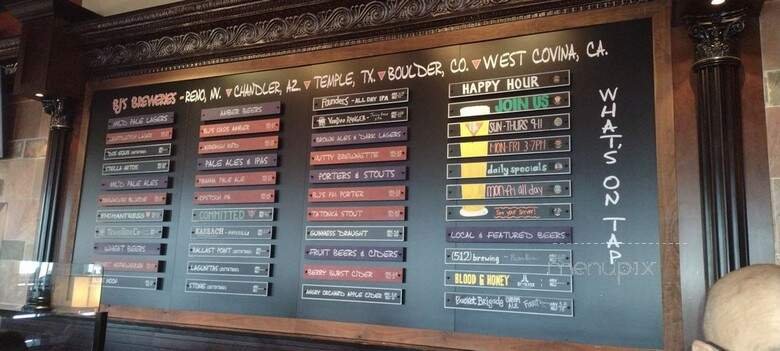 BJ'S BREWERIES - RENO, NV. CHANDLER, AZ. TEMPLE, TX. BOULDER, CO. WEST COVINA, CA.
MILD PALE LAGERS
DOS EQUIS
STELLA ARTOIS
MILD PALE ALES
ENCHANTRESS
WHEAT BEERS
AMBER BEERS
PALE ALES & IPAS
PIRANHA PALE
COMMITTED
KARBACH
BALLAST POINT
LAGUNITAS
STONE
FOUNDERS - ALL DAY IPA
VOODOO RANGER
BROWN ALES & DARK LAGERS
NUTTY BREWNETTE
PORTERS & STOUTS
BJ'S PM PORTER
TATONKA STOUT
GUINNESS DRAUGHT
FRUIT BEERS & CIDERS
BERRY BURST CIDER
ANGRY ORCHARD APPLE CIDER
HAPPY HOUR
JOIN US
SUN-THURS 9-11
MON-FRI 3-7PM
daily specials
mon-fri all day
See your server!
LOCAL & FEATURED BEERS
(512) brewing
BLOOD & HONEY
Bucket Brigade
WHAT'S ON TAP
menupix